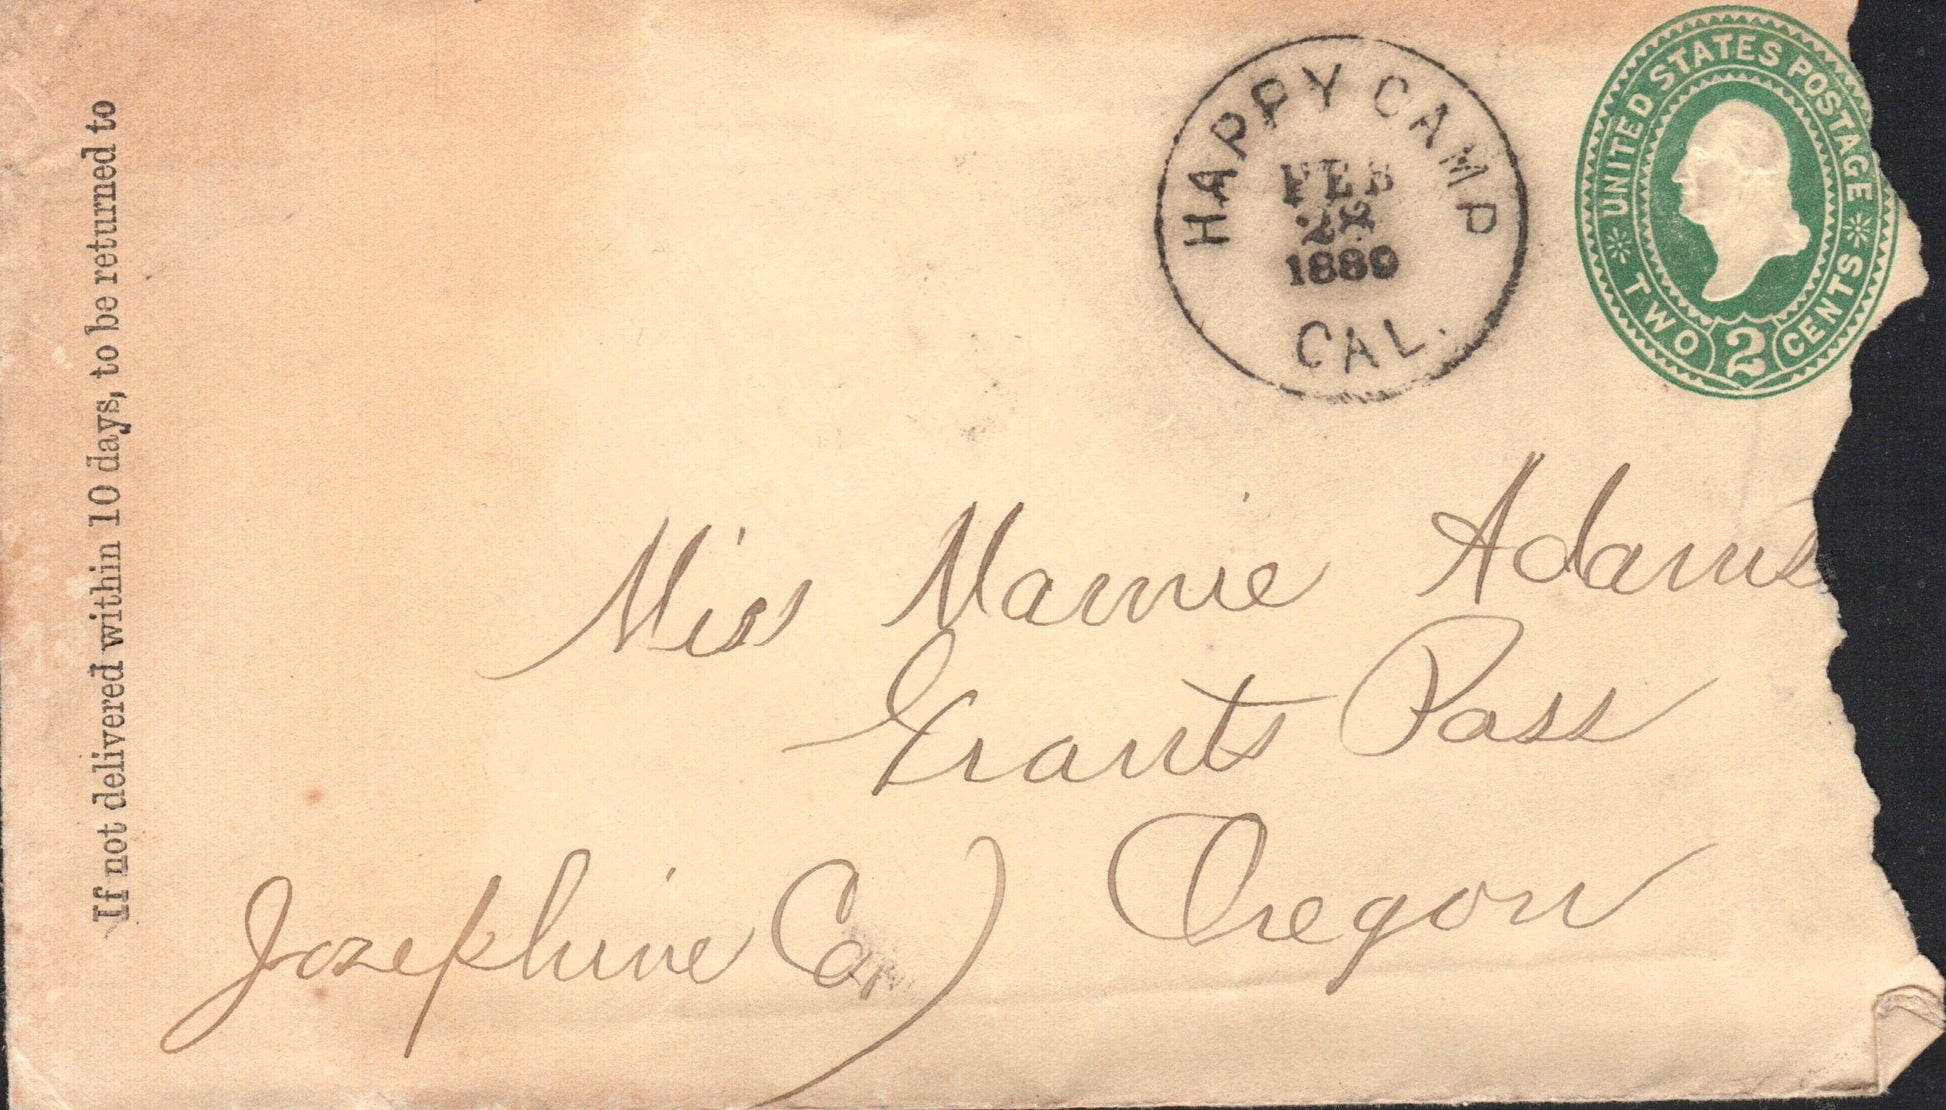 If not delivered within 10 days, to be returned to
HAPPY CAMP
FEB
1889
CAL.
UNITED STATES POSTAGE
TWO 2 CENTS
Miss Mamie Adams
Grants Pass
Josephine Co) Oregon